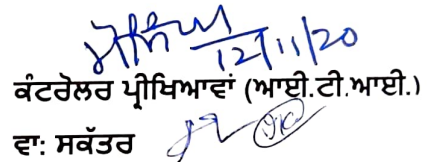 12/11/20
ਕੰਟਰੋਲਰ ਪ੍ਰੀਖਿਆਵਾਂ (ਆਈ.ਟੀ.ਆਈ.)
ਵਾ: ਸਕੱਤਰ